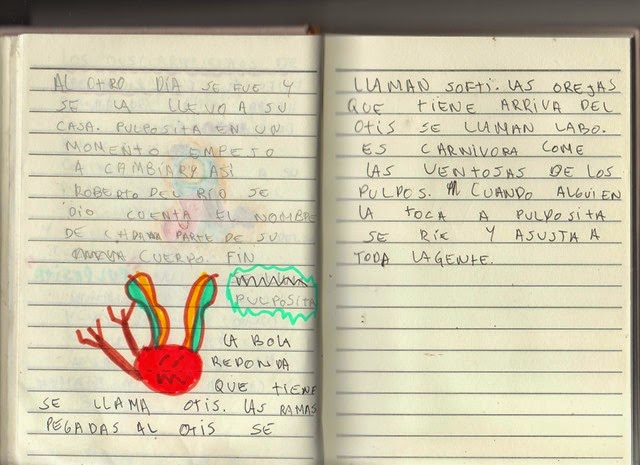 AL OTRO DÍA SE FUE Y
SE LA LLEVO A SU
CASA. PULPOSITA EN UN
MOMENTO EMPESO
A CAMBIAR Y ASI
ROBERTO DEL RIO SE
DIO CUENTA EL NOMBRE
DE CADA PARTE DE SU
CUERPO. FIN
PULPOSITA
LA BOLA
REDONDA
QUE TIENE
SE LLAMA OTIS. LAS RAMAS
PEGADAS AL OTIS SE
LLAMAN SOFTI. LAS OREJAS
QUE TIENE ARRIVA DEL
OTIS SE LLAMAN LABO.
ES CARNIVORA COME
LAS VENTOJAS DE LOS
PULPOS. CUANDO ALGUIEN
LA TOCA A PULPOSITA
SE RIE Y ASUSTA A
TODA LAGENTE.